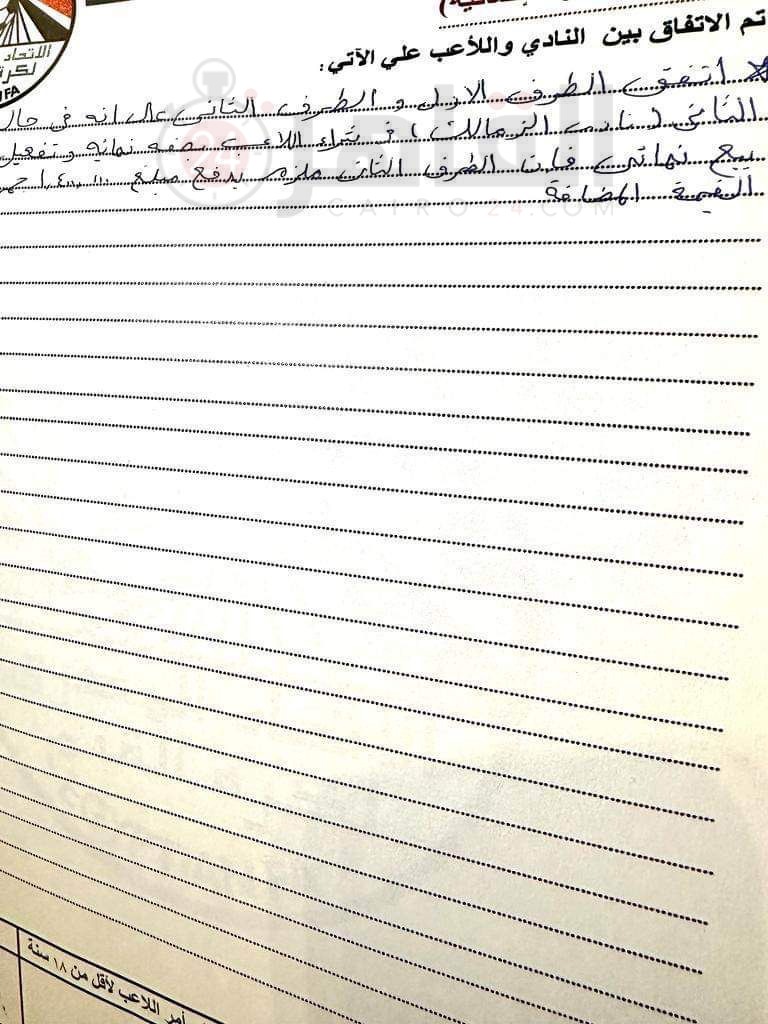 الاتحاد
لكرة
FA
تم الاتفاق بين النادي واللاعب علي الآتي :
اتفق الطرف الاول و الطرف الثاني على انه في حال
الثاني (نادي الزمالك) في شراء اللاعب بصفه نهائيه وتفعيل
بيع نهائي فان الطرف الثاني ملزم بدفع مبلغ
القيمة المضافة
القاهرة 24
CAIRO24.COM
أمر اللاعب لأقل من ١٨ سنة